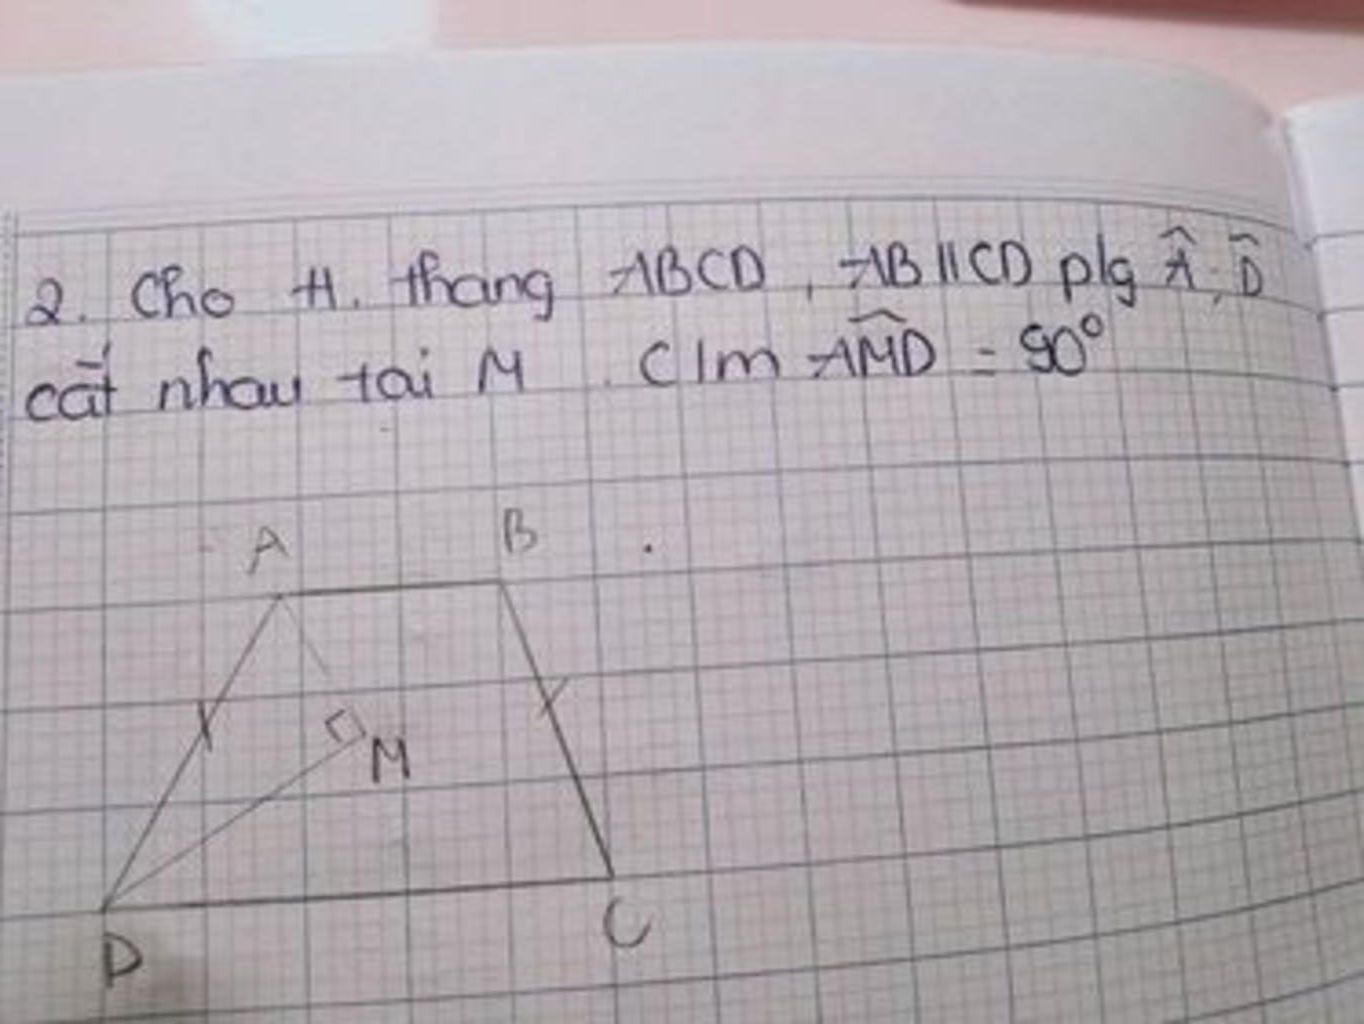 2. Cho H. thang ABCD, AB // CD plg Â; D̂
cắt nhau tại M. C/m AM̂D = 90°
A B
M
D C